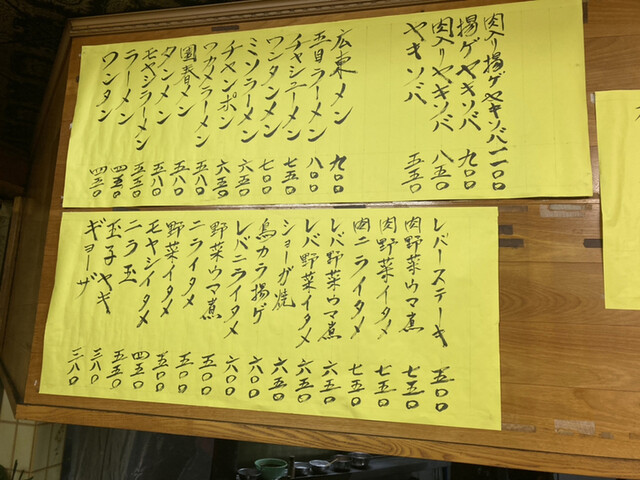 肉入り揚ゲヤキソバ 一一〇〇
揚ゲヤキソバ 九〇〇
肉入りヤキソバ 八五〇
ヤキソバ 五五〇
広東メン 九〇〇
五目ラーメン 八〇〇
チャシューメン 七五〇
ワンタンメン 七〇〇
ミソラーメン 六五〇
チャンポン 六五〇
ワカメラーメン 五八〇
国春メン 五八〇
タンメン 五八〇
モヤシラーメン 五五〇
ラーメン 四五〇
ワンタン 四五〇
レバーステーキ 五〇〇
肉野菜ウマ煮 七五〇
肉野菜イタメ 七五〇
肉ニライタメ 七五〇
レバ野菜ウマ煮 六五〇
レバ野菜イタメ 六五〇
ショーガ焼 六五〇
鳥カラ揚ゲ 六〇〇
レバニライタメ 六〇〇
野菜ウマ煮 五〇〇
ニライタメ 五〇〇
野菜イタメ 五〇〇
モヤシイタメ 四五〇
ニラ玉 五五〇
玉子ヤキ 三八〇
ギョーザ 三八〇